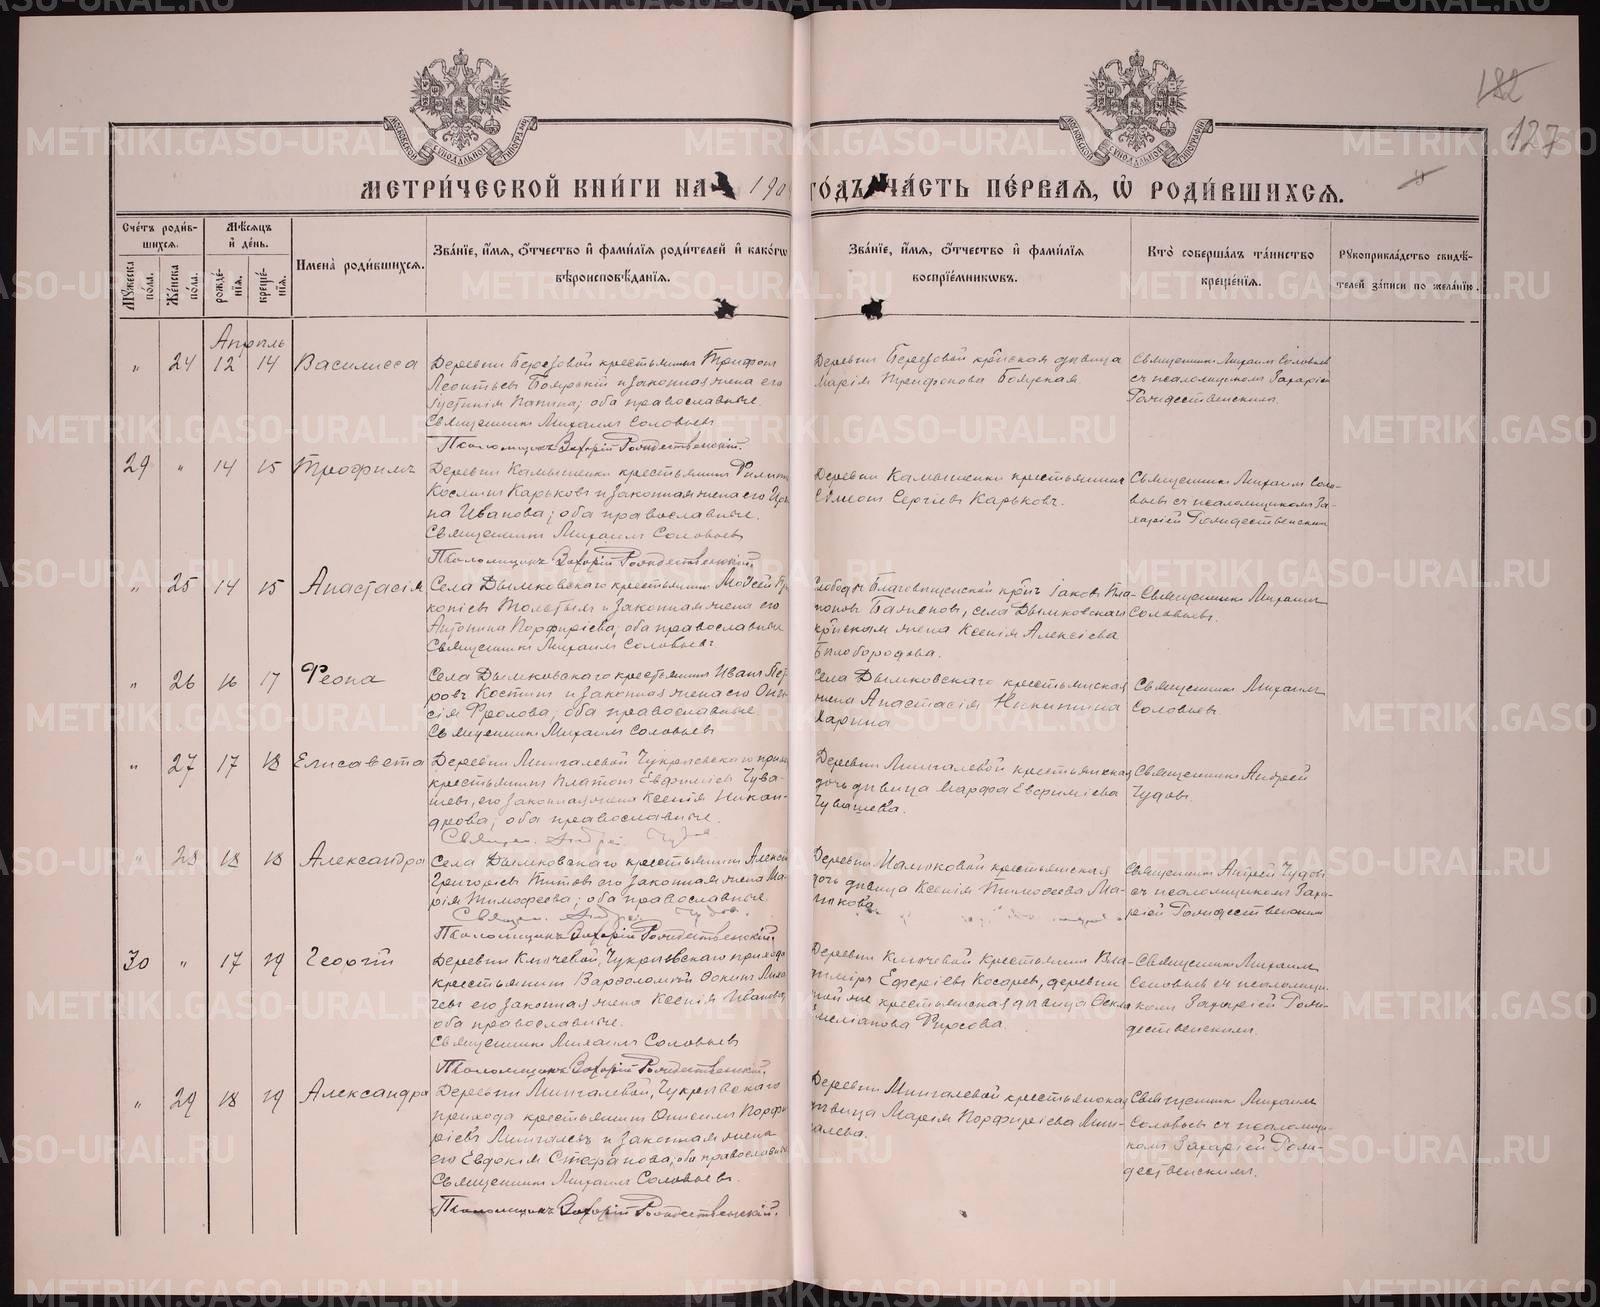 182
127
МЕТРИ́ЧЕСКОЙ КНИ́ГИ НА 190 ГО́ДЪ ЧА́СТЬ ПЕ́РВАЯ, Ѡ РОДИ́ВШИХСЯ.
Счётъ роди́вшихся.
Мѣ́сяцъ и де́нь.
Му́жеска по́ла.
Же́нска по́ла.
рожде́нїя.
креще́нїя.
Имена̀ роди́вшихся.
Зва́нїе, и́мя, о́тчество и фами́лїя роди́телей и како́гѡ
вѣроисповѣ́данїя.
Зва́нїе, и́мя, о́тчество и фами́лїя
воспрїе́мниковъ.
Кто̀ соверша́лъ та́инство
креще́нїя.
Рукоприкла́дство свидѣ́-
телей за́писи по жела́нїю.
Апрѣль
" 24 12 14 Василисса
Деревни Березовой крестьянинъ Трифонъ
Леонтьевъ Боярскій и законная жена его
Іустинія ; оба православные.
Священникъ Михаилъ Соловьевъ
Псаломщикъ Захарій Рождественскій.
Деревни Березовой кр̃нская дѣвица
Марія Трифонова Боярская
Священникъ Михаилъ Соловьевъ
съ псаломщикомъ Захаріей
Рождественскимъ.
29 " 14 15 Трофимъ
Деревни Камышенки крестьянинъ Филиппъ
Косминъ Карьковъ и законная жена его Ири-
на Иванова; оба православные.
Священникъ Михаилъ Соловьевъ
Псаломщикъ Захарій Рождественскій
Деревни Камышенки крестьянинъ
Симеонъ Сергіевъ Карьковъ.
Священникъ Михаилъ Соло-
вьевъ съ псаломщикомъ За-
харіей Рождественскимъ
" 25 14 15 Анастасія
Села Дымковскаго крестьянинъ Мойсей
Толстыхъ и законная жена его
Антонина Порфиріева; оба православные
Священникъ Михаилъ Соловьевъ
Слободы Благовѣщенской кр̃нъ Іаковъ Пла-
тоновъ Баженовъ, села Дымковскаго
кр̃нская жена Ксенія Алексіева
Бѣлобородова.
Священникъ Михаилъ
Соловьевъ.
" 26 16 17 Феона
Села Дымковскаго крестьянинъ Иванъ Пет-
ровъ Костинъ и законная жена его Они-
сія Фролова; оба православные
Священникъ Михаилъ Соловьевъ
Села Дымковскаго крестьянская
жена Анастасія Никитина
Ларина
Священникъ Михаилъ
Соловьевъ
" 27 17 18 Елисавета
Деревни Мингалевой Чукреевскаго прих.
крестьянинъ Платонъ Евфиміевъ Чува-
шевъ, его законная жена Ксенія Никан-
дрова; оба православные.
Священ. Андрей Чудовъ
Деревни Мингалевой крестьянская
дочь дѣвица Марфа Евфиміева
Чувашева.
Священникъ Андрей
Чудовъ.
" 28 18 18 Александра
Села Дымковскаго крестьянинъ Алексѣй
Григорьевъ Титовъ его законная жена Ма-
рія Тимофеева; оба православные.
Священ. Андрей Чудовъ.
Псаломщикъ Захарій Рождественскій
Деревни крестьянская
дочь дѣвица Ксенія Тимофеева
Священникъ Андрей Чудовъ
съ псаломщикомъ Заха-
ріей Рождественскимъ
30 " 17 19 Георгій
Деревни Ключевой, Чукреевскаго прихода
крестьянинъ Варфоломей
его законная жена Ксенія Иванова,
оба православные.
Священникъ Михаилъ Соловьевъ
Псаломщикъ Захарій Рождественскій.
Деревни Ключевой крестьянинъ Вла-
диміръ Косаревъ, деревни
той же крестьянская дѣвица Фекла
Емеліанова Фирсова.
Священникъ Михаилъ
Соловьевъ съ псаломщи-
комъ Захаріей Рож-
дественскимъ.
" 29 18 19 Александра
Деревни Мингалевой, Чукреевскаго
прихода крестьянинъ Онисимъ Порфи-
ріевъ Мингалевъ и законная жена
его Евдокія Стефанова; оба православные
Священникъ Михаилъ Соловьевъ.
Псаломщикъ Захарій Рождественскій.
Деревни Мингалевой крестьянская
дѣвица Марія Порфиріева Мин-
галева.
Священникъ Михаилъ
Соловьевъ съ псаломщи-
комъ Захаріей Рож-
дественскимъ.
METRIKI.GASO-URAL.RU